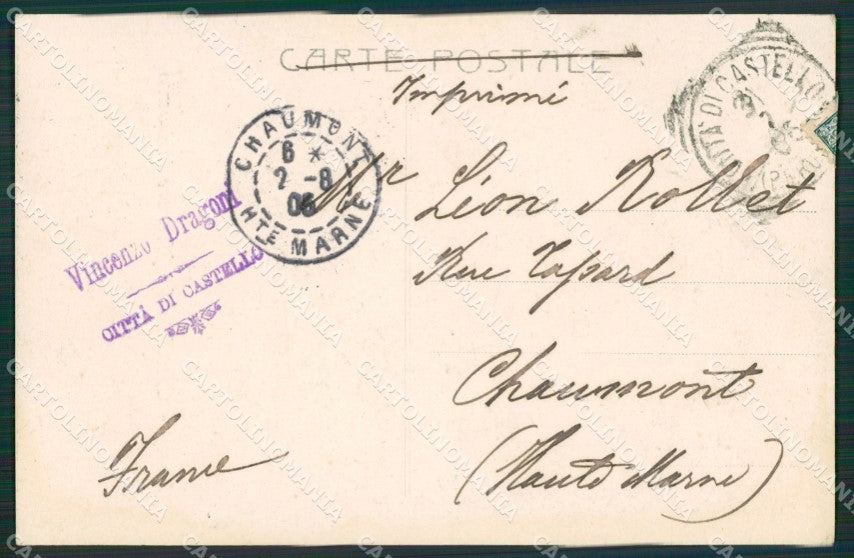 CARTE POSTALE
Imprimé
CITTÀ DI CASTELLO
CHAUMONT
6 *
2 - 8
06
HTE MARNE
Mr Léon Rollet
Vincenzo Dragoni
CITTÀ DI CASTELLO
Rue Tapard
Chaumont
(Haute Marne)
France
CARTOLINOMANIA